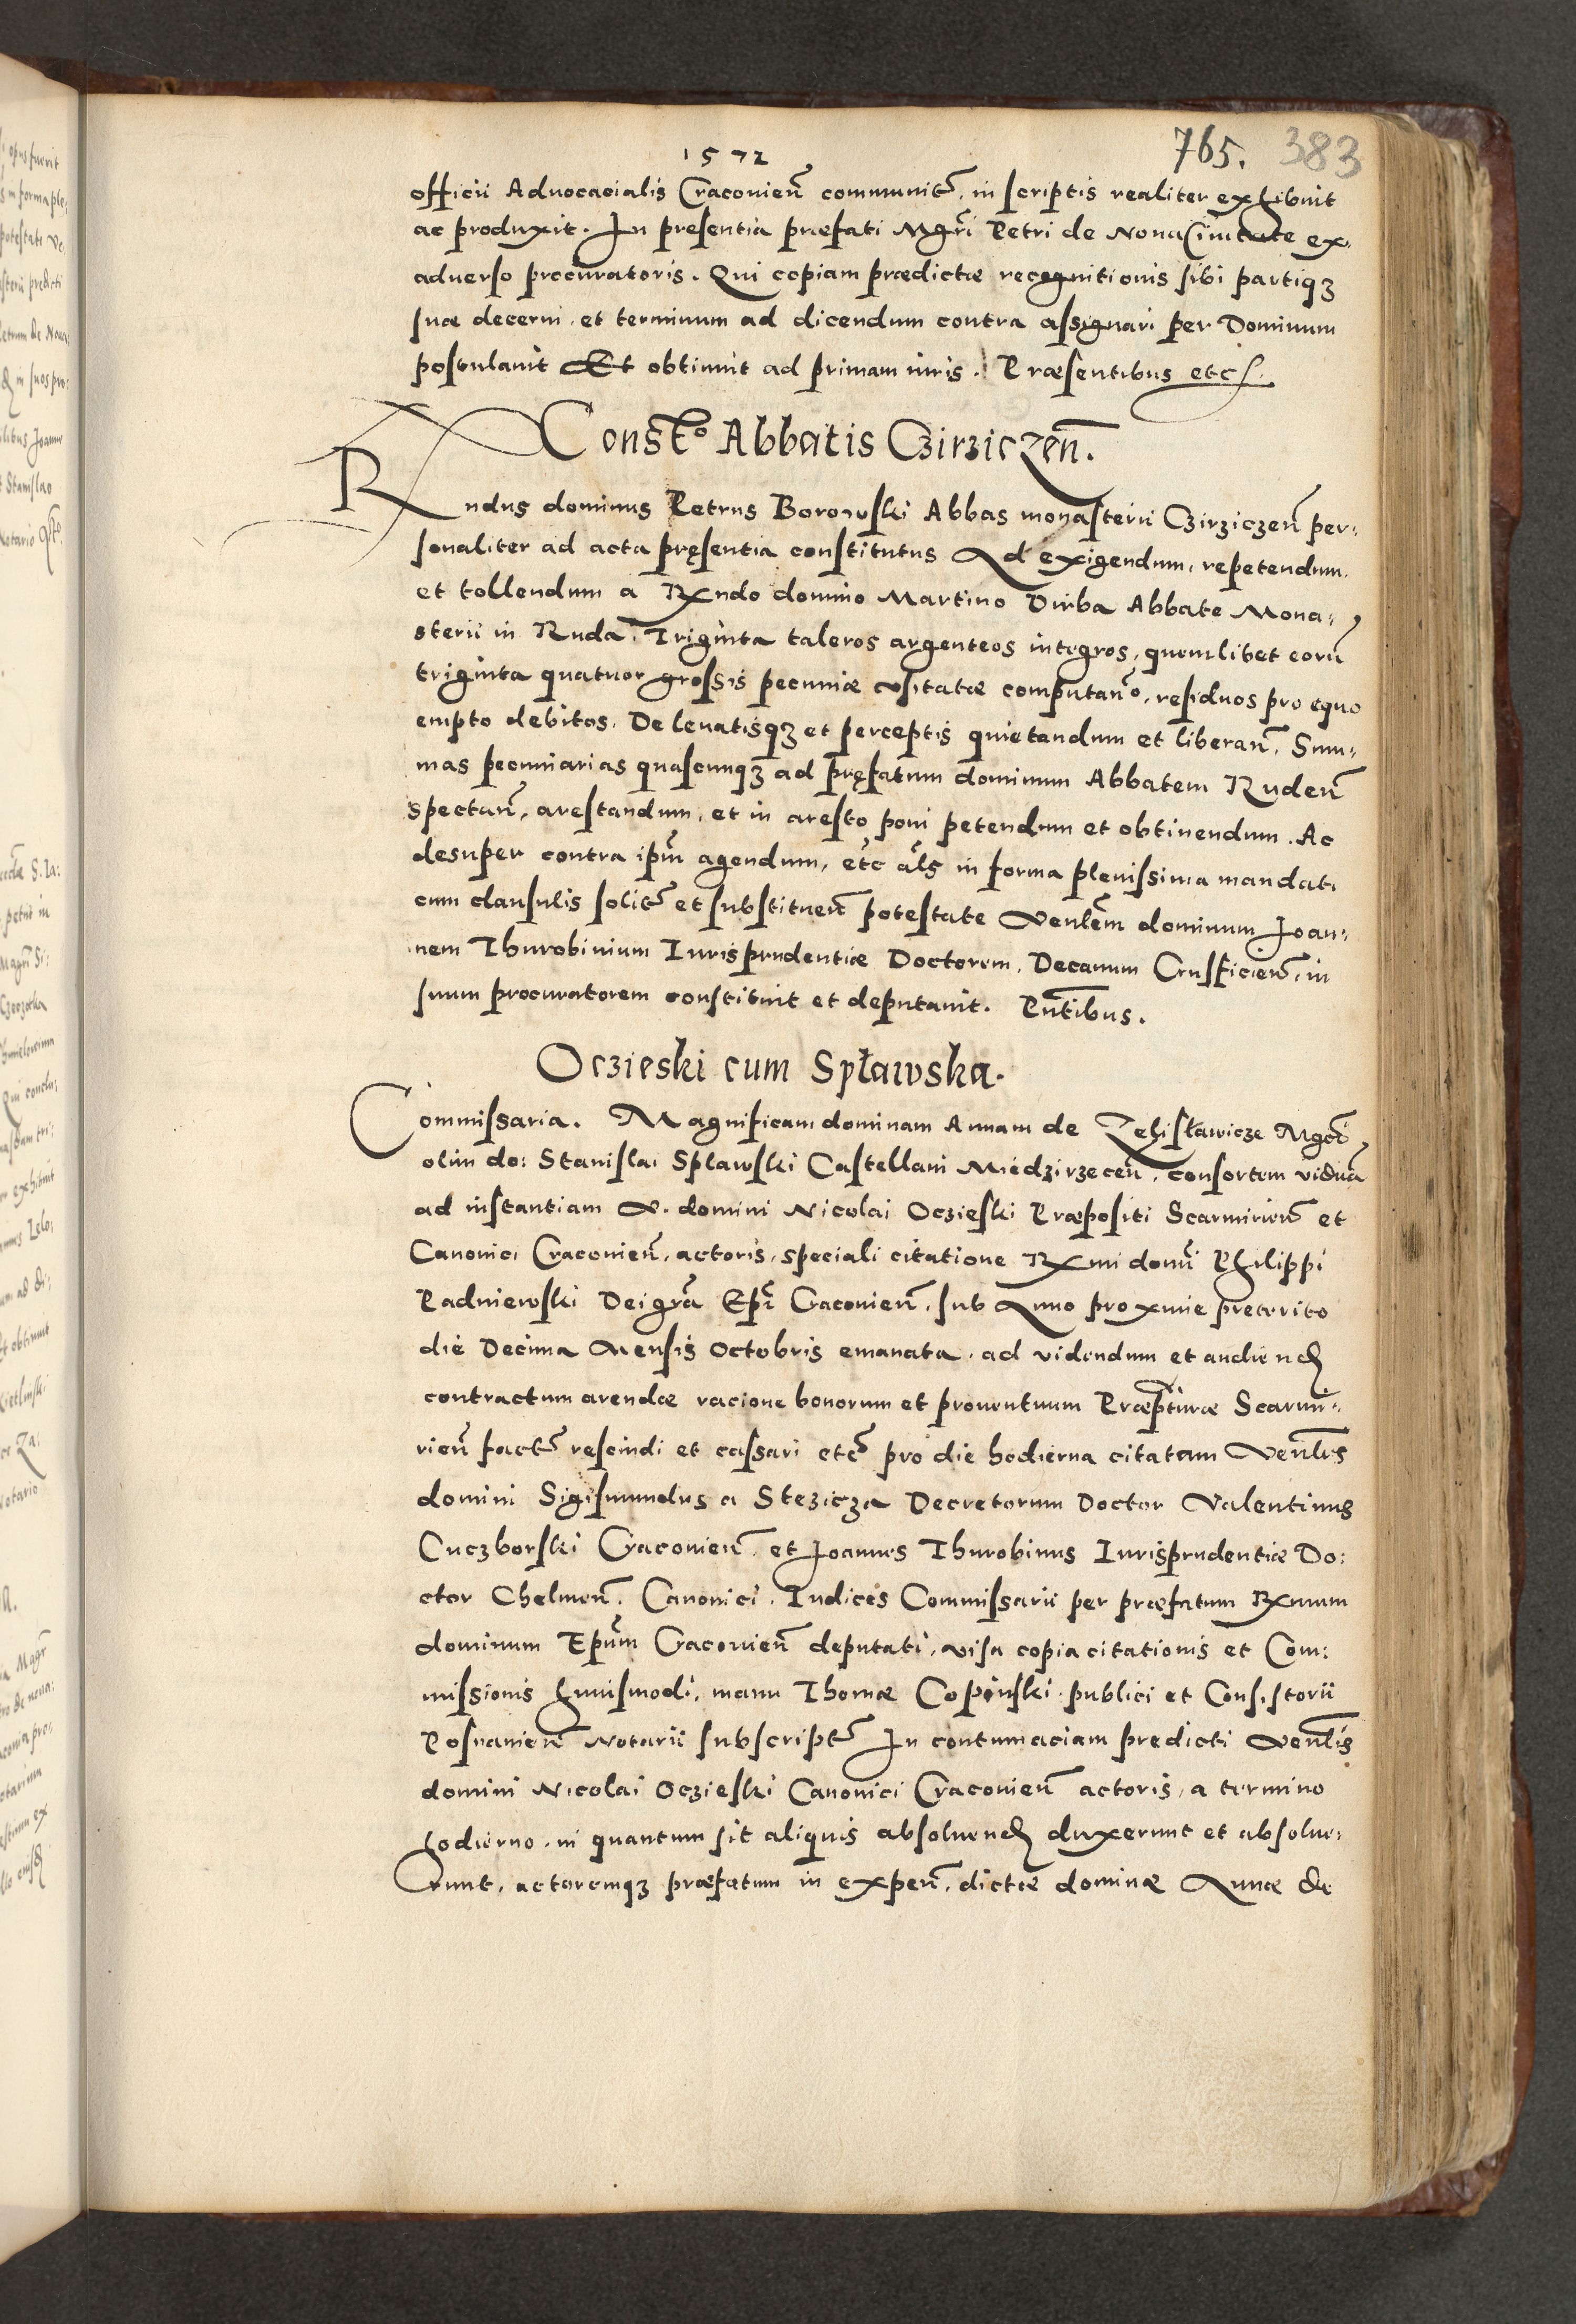 1572
765. 383
officii Aduocacialis Cracovien̄ communit̄, in scriptis realiter exhibuit
ac produxit. In presentia præfati Mgr̄i Petri de Noua Ciuitate ex
aduerso procuratoris. Qui copiam prædictæ recognitionis sibi partiqꝫ
suæ decerni, et terminum ad dicendum contra assignari per Dominum
postulauit Et obtinuit ad primam iuris. Præsentibus etc
Const̄o Abbatis Czirziczen̄.
Rndus dominus Petrus Borowski Abbas monasterii Czirziczen̄ per:
sonaliter ad acta pręsentia constitutus Ad exigendum, repetendum,
et tollendum a Rxndo domino Martino Dirba Abbate Mona:
sterii in Ruda, Triginta taleros argenteos integros, quemlibet eorū
triginta quatuor grossis pecuniæ vsitatæ computan̄o, residuos pro equo
empto debitos. De leuatisqꝫ et perceptis quietandum et liberan̄. Sum:
mas pecuniarias quascunqꝫ ad pręfatum dominum Abbatem Ruden̄
spectan̄, arestandum, et in aresto poni petendum et obtinendum. Ac
desuper contra ipm̄ agendum, etc al̄s in forma plenissima mandati
cum clausulis solit̄ et substituen̄ potestate Venlem̄ dominum Joan:
nem Thurobinium Iurisprudentiæ Doctorem, Decanum Crusficien̄, in
suum procuratorem constituit et deputauit. Pn̄tibus.
Oczieski cum Spławska.
Commissaria. Magnificam dominam Annam de Zelisławicze Mgc̄i
olim do: Stanislai Splawski Castellani Miedzirzecen̄, consortem viduā
ad instantiam V. domini Nicolai Oczieski Præpositi Scarmirien̄ et
Canonici Cracouien̄, actoris, speciali citatione Rxmi domi̅ Philippi
Padniewski Dei gr̄a Ep̄i Cracouien̄, sub Anno proxime preterito
die Decima Mensis Octobris emanata, ad videndum et audiend
contractum arendæ racione bonorum et prouentuum Præpturæ Scarmi:
rien̄ fact̄ rescindi et cassari etc̄ pro die hodierna citatam Venles
domini Sigismundus a Stezicza Decretorum Doctor Valentinus
Cuczborski Cracouien̄, et Joannes Thurobinus Iurisprudentiæ Do:
ctor Chelmen̄. Canonici. Iudices Commissarii per præfatum Rxmum
dominum Ep̄um Cracouien̄ deputati, visa copia citationis et Com:
missionis huiusmodi, manu Thomæ Copinski publici et Consistorii
Posnanien̄ Notarii subscript̄ In contumaciam predicti Venlis
domini Nicolai Oczieski Canonici Cracouien̄ actoris, a termino
hodierno, in quantum sit aliquis absoluend duxerunt et absolue:
runt, actoremqꝫ præfatum in expen̄, dictæ dominæ Annæ de